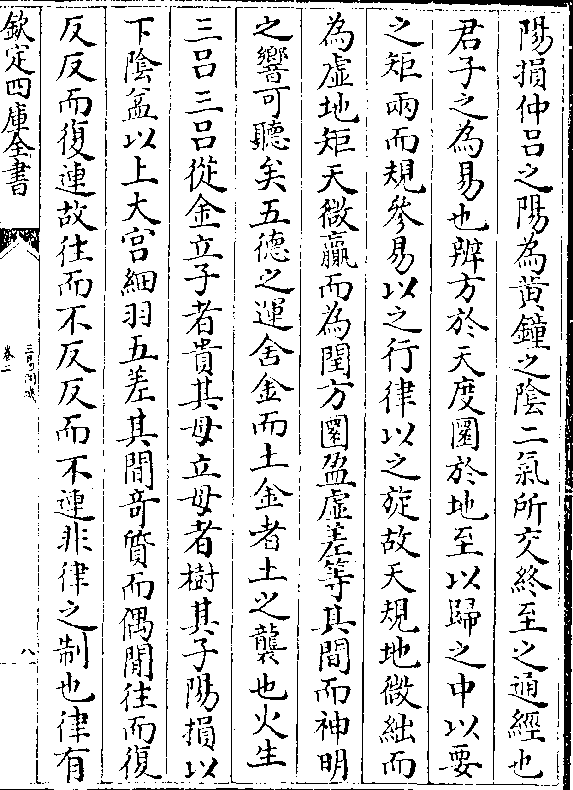 陽損仲呂之陽為黄鐘之陰二氣所交終至之通經也
君子之為易也辨方於天度圜於地至以歸之中以要
之矩兩而規參易以之行律以之旋故天規地微絀而
為虚地矩天微贏而為閏方圜盈虚差等其間而神明
之響可聽矣五德之運舍金而土金者土之襲也火生
三呂三呂從金立子者貴其母立母者樹其子陽損以
下陰益以上大宫細羽五差其間竒質而偶間往而復
反反而復連故往而不反反而不連非律之制也律有
欽定四庫全書
卷一
八